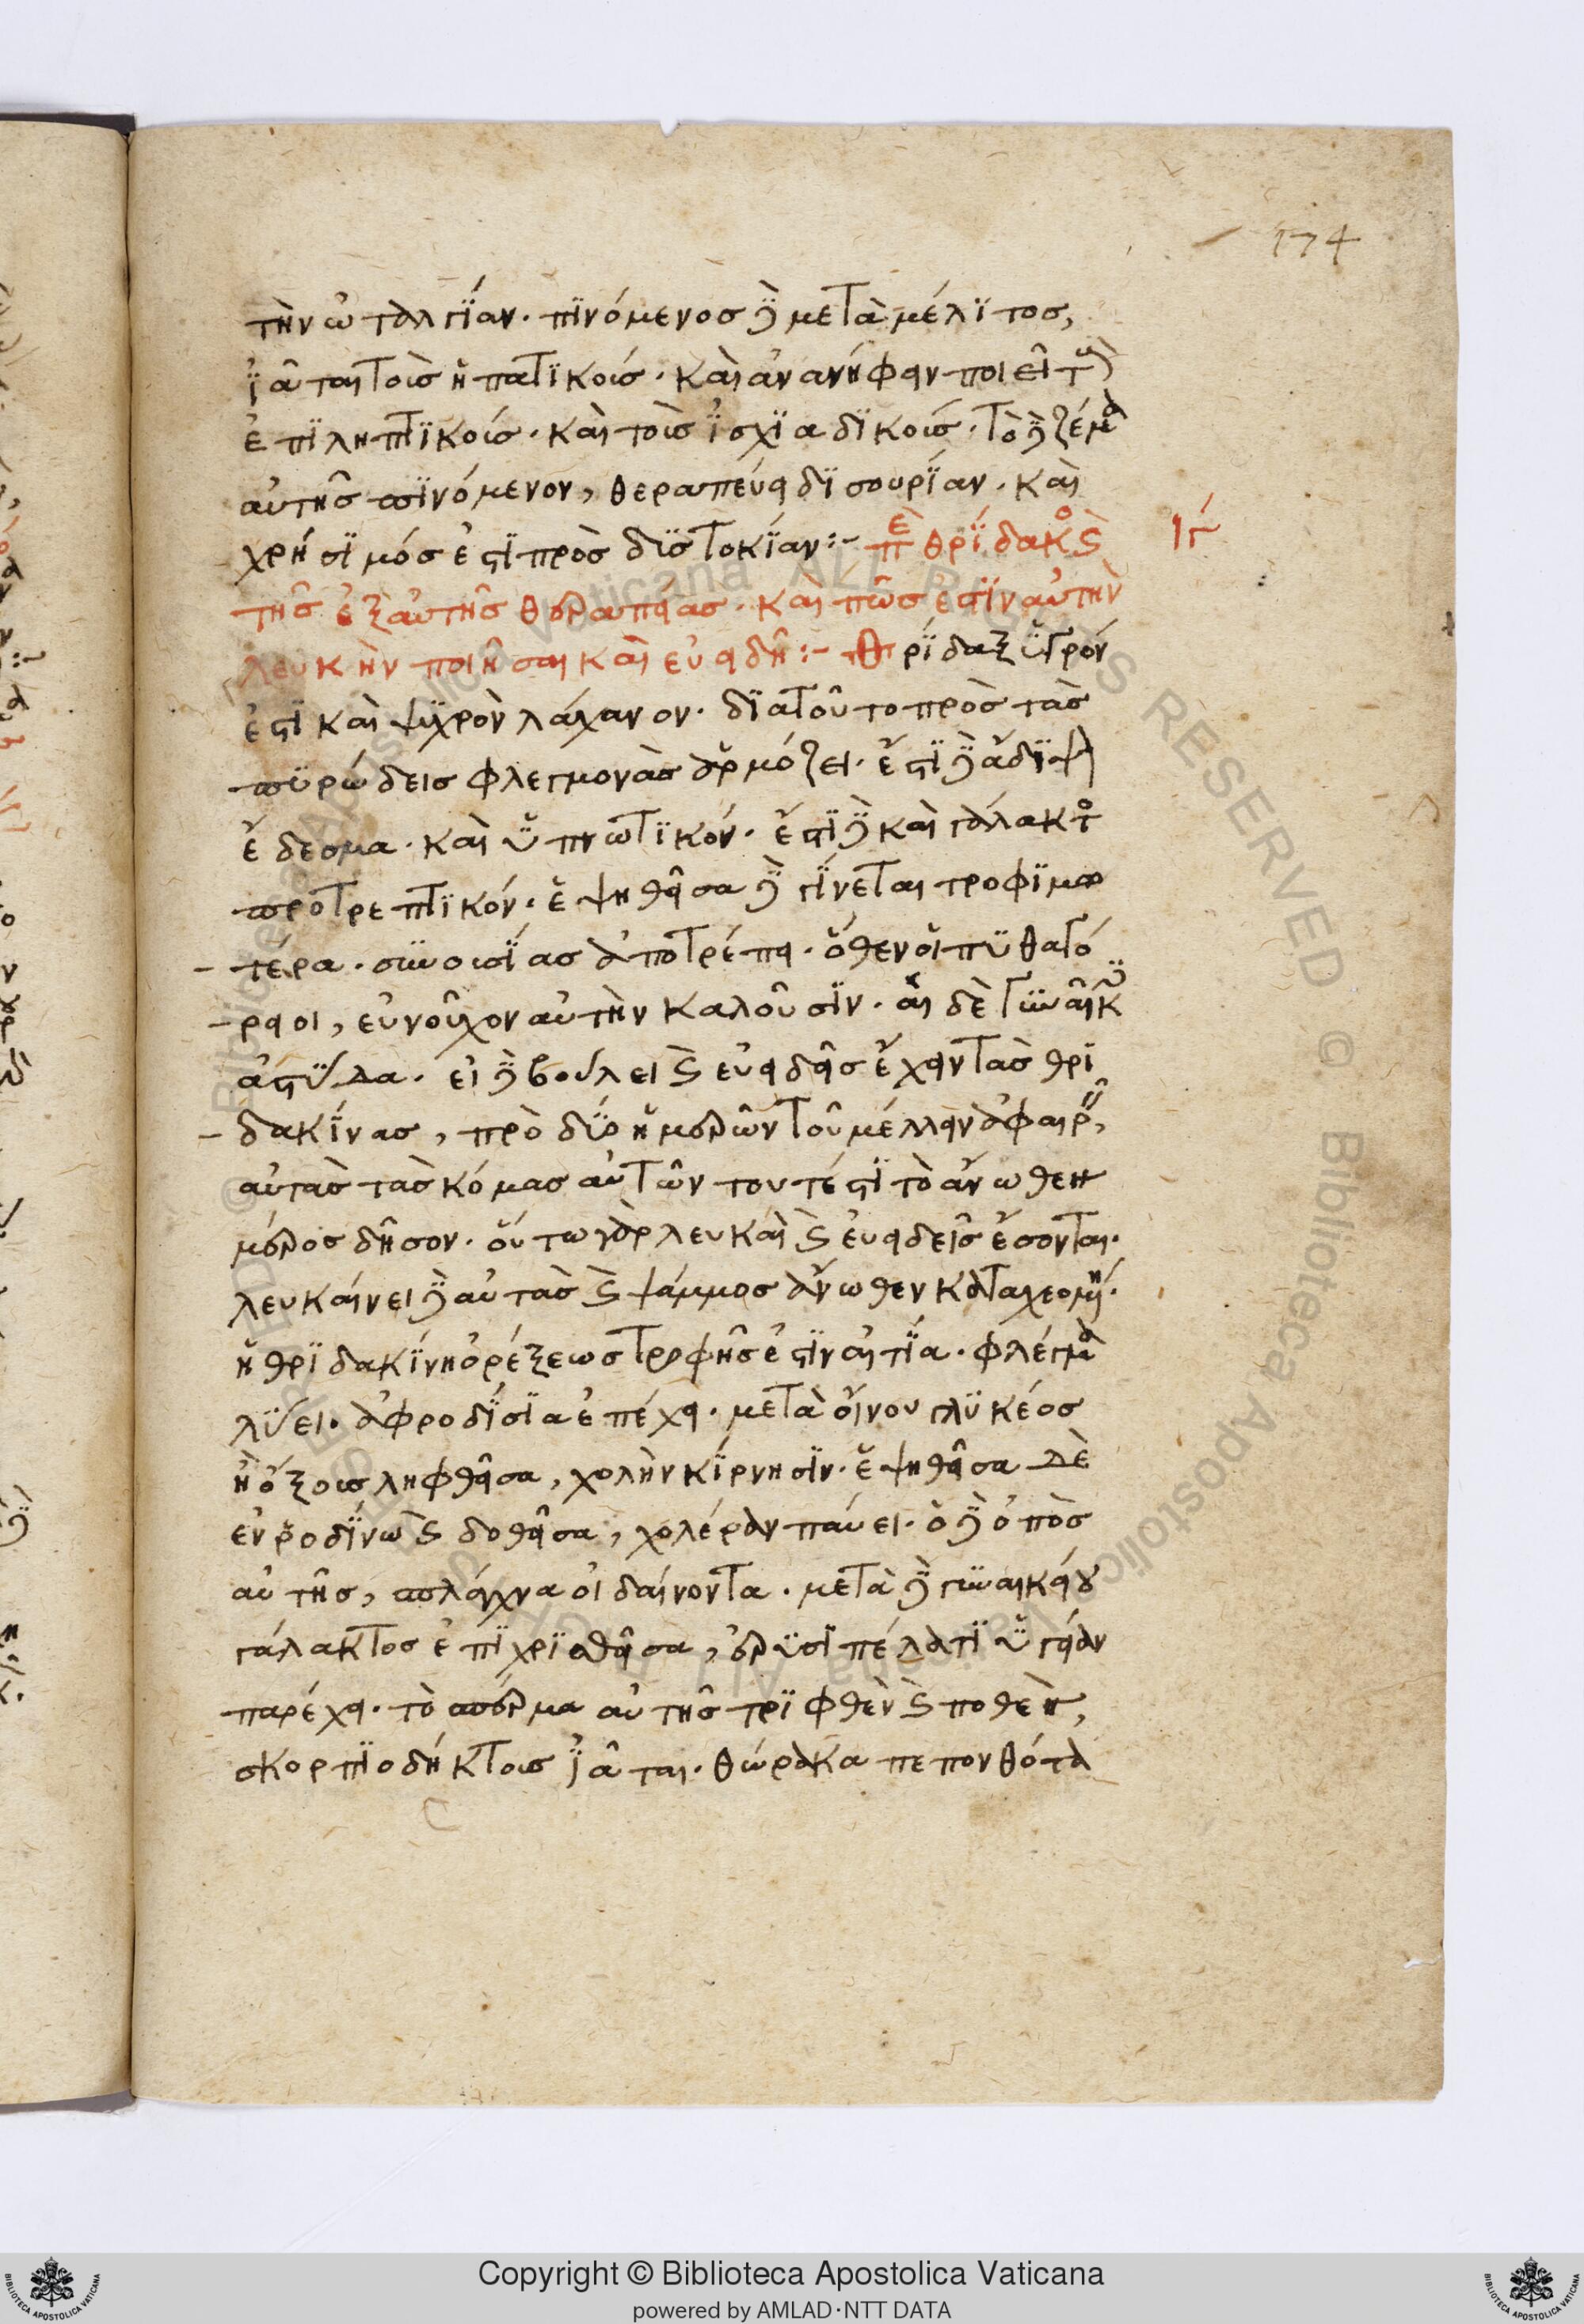 174
τὴν ὠταλγίαν. πινόμενος δὲ μετὰ μέλιτος,
ἰᾶται τοὺς ἡπατικούς. καὶ ἀνανήφειν ποιεῖ τοὺς
ἐπιληπτικούς. καὶ τοὺς ἰσχιαδικούς. τὸ δὲ ζέμα
αὐτῆς πινόμενον, θεραπεύει δισουρίαν. καὶ
χρήσιμός ἐστι πρὸς διστοκίαν:- περὶ θρίδακος καὶ ιγ
τῆς ἐξ αὐτῆς θεραπείας. καὶ πῶς ἐστὶν αὐτὴν
λευκὴν ποιῆσαι καὶ εὐειδῆ:- Θρίδαξ ὑγρόν
ἐστι καὶ ψυχρὸν λάχανον. διατοῦτο πρὸς τὰς
πυρώδεις φλεγμονὰς ἁρμόζει. ἔστι δὲ ἄδιψον
ἔδεσμα. καὶ ὑπνωτικόν. ἔστι δὲ καὶ γάλακτος
προτρεπτικόν. ἑψηθεῖσα δὲ γίνεται τροφιμω
τέρα. συνουσίας ἀποτρέπει. ὅθεν οἱ πυθαγό
ρειοι, εὐνοῦχον αὐτὴν καλοῦσιν. αἱ δὲ γυναῖκες
ἀστύλα. εἰ δὲ βούλει καὶ εὐειδεῖς ἔχειν τὰς θρι
δακίνας, πρὸ δύο ἡμερῶν τοῦ μέλλειν ἀφαιρεῖν,
αὐτὰς τὰς κόμας αὐτῶν τουτέστι τὸ ἄνωθεν
μέρος δῆσον. οὕτω γὰρ λευκαὶ καὶ εὐειδεῖς ἔσονται.
λευκαίνει δὲ αὐτὰς καὶ ψάμμος ἄνωθεν καταχεομένη.
ἡ θριδακίνη ὀρέξεως τροφῆς ἐστὶν αἰτία. φλέγμα
λύει. ἀφροδίσια ἐπέχει. μετὰ οἴνου γλυκέος
ἢ ὄξους ληφθεῖσα, χολὴν κίρνησιν. ἑψηθεῖσα δὲ
ἐν ῥοδίνω καὶ δοθεῖσα, χολέραν παύει. ὁ δὲ ὀπὸς
αὐτῆς, σπλάγχνα οἰδαίνοντα. μετὰ δὲ γυναικείου
γάλακτος ἐπιχρισθεῖσα, ἐρυσιπέλατι ὑγείαν
παρέχει. τὸ σπέρμα αὐτῆς τριφθὲν καὶ ποθὲν,
σκορπιοδήκτους ἰᾶται. θώρακα πεπονθότα
Copyright © Biblioteca Apostolica Vaticana
powered by AMLAD·NTT DATA